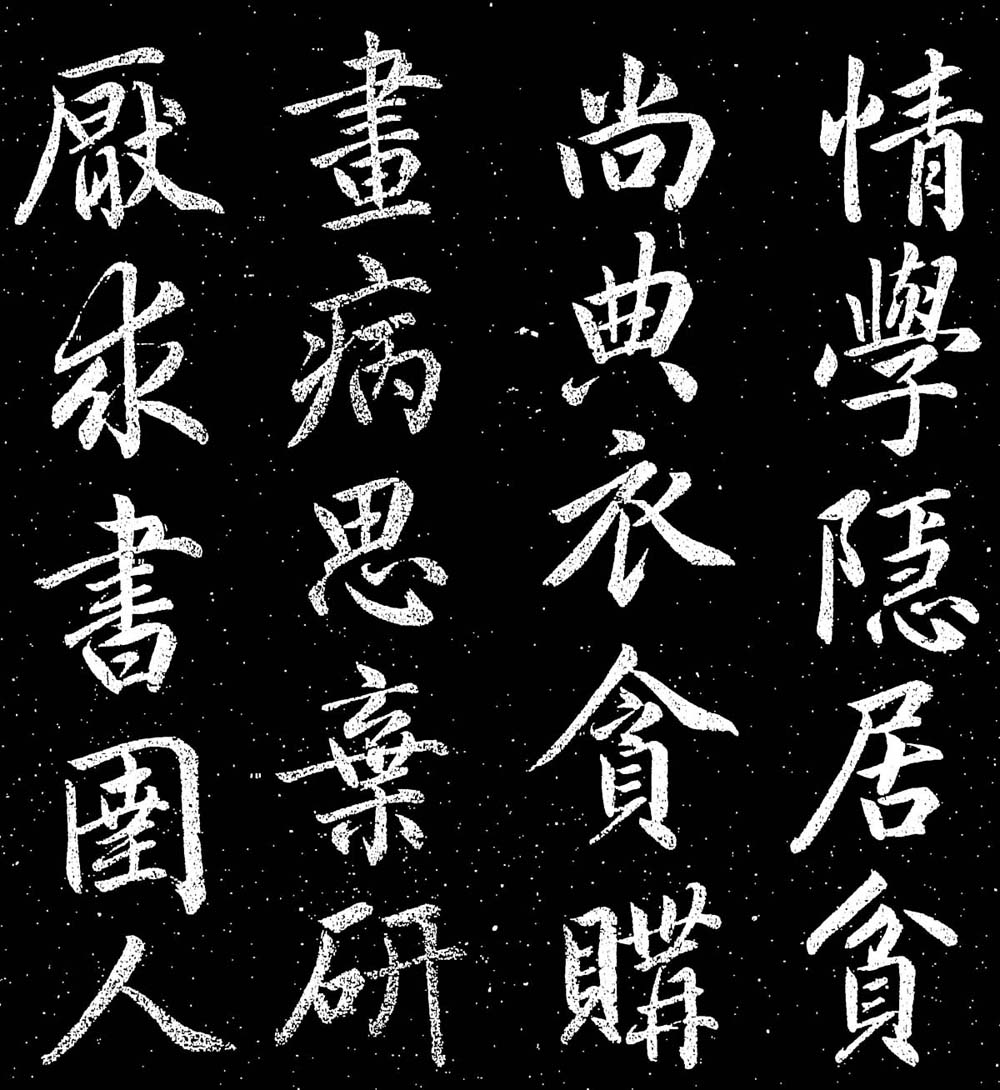 情學隱居貧
尚典衣貪購
畫病思棄研
厭求書圍人